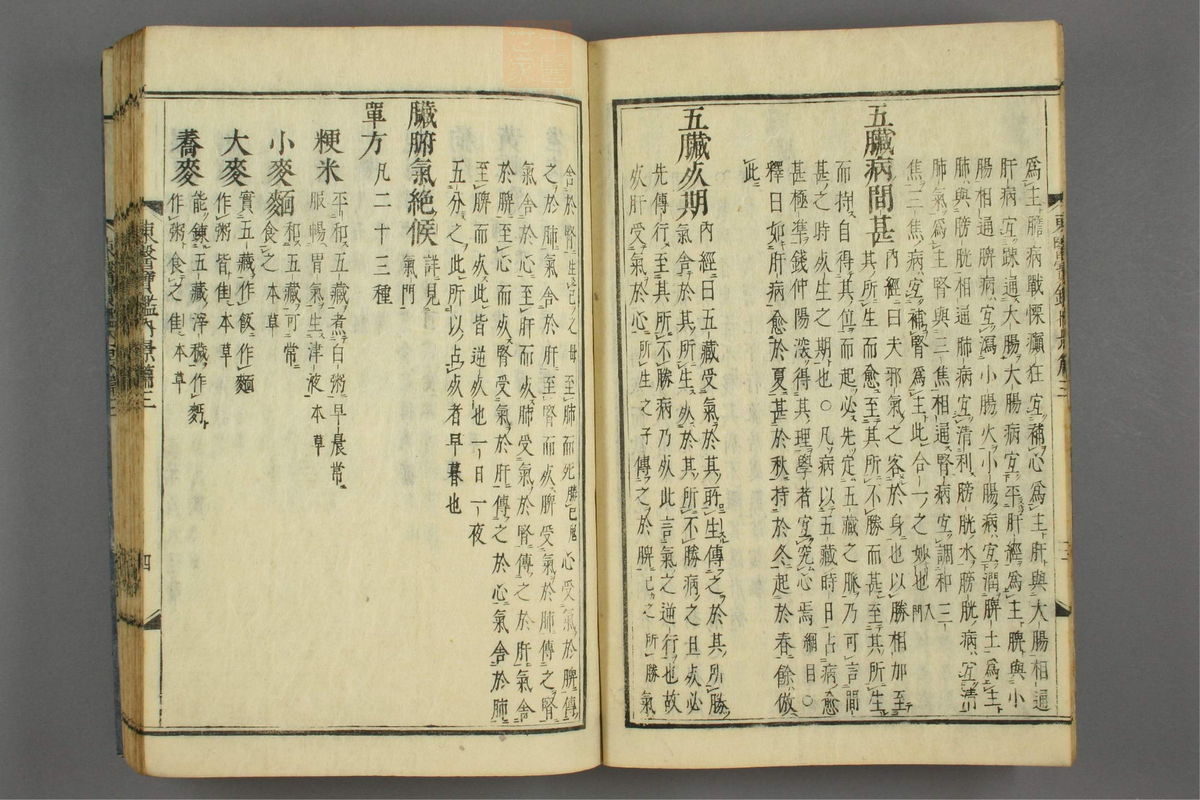 爲主膽病戰慄癲狂宜補心爲主肝與大腸相通
肝病宜踈通大腸大腸病宜平肝經爲主脾與小
腸相通脾病宜瀉小腸火小腸病宜潤脾土爲主
肺與膀胱相通肺病宜清利膀胱水膀胱病宜清
肺氣爲主腎與三焦相通腎病宜調和三
焦三焦病宜補腎爲主此合一之妙也入門
五臟病間甚
內經曰夫邪氣之客於身也以勝相加至
其所生而愈至其所不勝而甚至其所生
而持自得其位而起必先定五藏之脉乃可言間
甚之時死生之期也○凡病以五藏時日占病愈
甚極準錢仲陽深得其理學者宜究心焉綱目○
釋曰如肝病愈於夏甚於秋持於冬起於春餘倣
此
五臟死期
內經曰五藏受氣於其所生傳之於其所勝
氣舍於其所生死於其所不勝病之且死必
先傳行至其所不勝病乃死此言氣之逆行也故
死肝受氣於心所生之子傳之於脾己之所勝氣
舍於腎生己之母至肺而死勝己鬼心受氣於脾傳
之於肺氣舍於肝至腎而死脾受氣於肺傳之腎
氣舍於心至肝而死肺受氣於腎傳之於肝氣舍
於脾至心而死腎受氣於肝傳之於心氣舍於肺
至脾而死此皆逆死也一日一夜
五分之此所以占死者早暮也
臟腑氣絶候
詳見氣門
單方
凡二十三種
粳米
平和五藏者白粥早晨常
服暢胃氣生津液本草
小麥麵
和五藏可常
食之本草
大麥
實五藏作飯作麵
作粥皆佳本草
蕎麥
能鍊五藏滓穢作麪
作粥食之佳本草
東醫寶鑑內景篇三
四